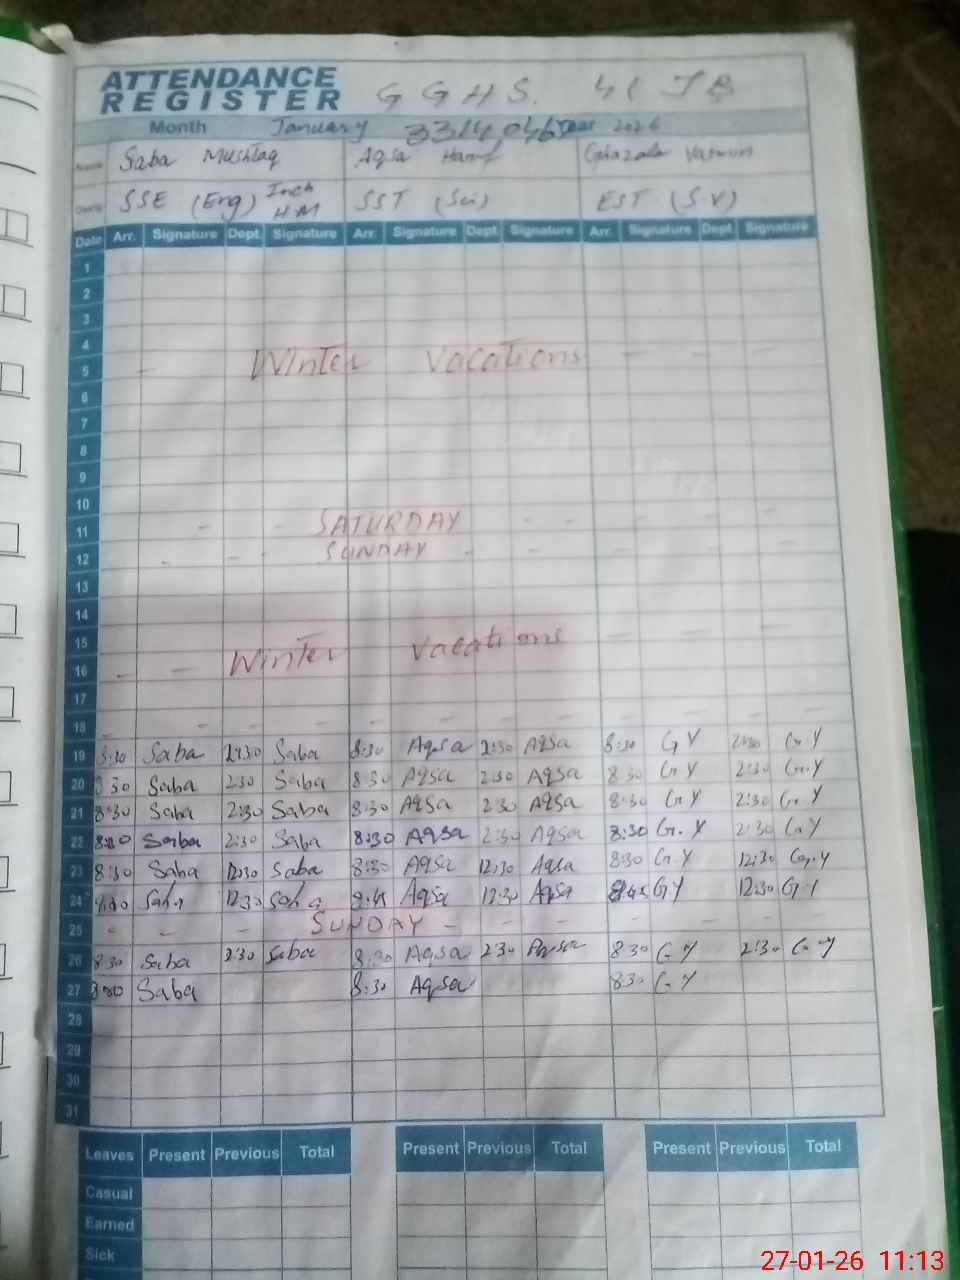 ATTENDANCE
REGISTER
G G H S. 41 JB
Month January 3314046 Year 2026
Name Saba Mushtaq Aqsa Hanif Ghazala
Desig SSE (Eng) Inch HM SST (Sci) EST (S.V)
Date Arr. Signature Dept. Signature Arr. Signature Dept. Signature Arr. Signature Dept. Signature
1
2
3
4
5 Winter Vacations
6
7
8
9
10
11 SATURDAY
12 SUNDAY
13
14
15
16 Winter Vacations
17
18
19 8:30 Saba 2:30 Saba 8:30 Aqsa 2:30 Aqsa 8:30 G Y 2:30 G.Y
20 8 30 Saba 2:30 Saba 8:30 Aqsa 2:30 Aqsa 8 30 G Y 2:30 G.Y
21 8:30 Saba 2:30 Saba 8:30 Aqsa 2:30 Aqsa 8:30 G Y 2:30 G.Y
22 Saba 2:30 Saba 8:30 Aqsa 2:30 Aqsa 8:30 G.Y 2:30 G.Y
23 8:30 Saba 12:30 Saba 8:30 Aqsa 12:30 Aqsa 8:30 G.Y 12:30 G.Y
24 Saba 12:30 Saba 8:45 Aqsa 12:30 Aqsa 8:45 G Y 12:30 G Y
25 SUNDAY
26 8:30 Saba 2:30 Saba 8:30 Aqsa 2:30 8:30 G.Y 2:30 G.Y
27 Saba 8:30 Aqsa 8:30 G.Y
28
29
30
31
Leaves Present Previous Total Present Previous Total Present Previous Total
Casual
Earned
Sick
27-01-26 11:13